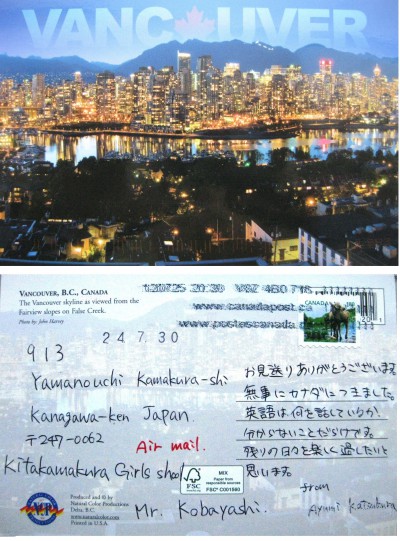 VANCOUVER
VANCOUVER, B.C., CANADA
The Vancouver skyline as viewed from the
Fairview slopes on False Creek.
Photo by: John Harvey
120725 20:30 V6Z 4B0 716
www.canadapost.ca
www.postescanada
CANADA
24.7.30
913
Yamanouchi Kamakura-shi
Kanagawa-ken Japan
〒247-0062
Air mail.
Kitakamakura Girls shool
Mr. Kobayashi.
お見送りありがとうございます。
無事にカナダにつきました。
英語は何を話しているか
分からないことだらけです。
残りの日々を楽しく過したいと
思います。
from
Ayumi Katsukura
FSC
MIX
Paper from
responsible sources
FSC® C001580
Produced and © by
Natural Color Productions
Delta, B.C.
www.naturalcolor.com
Printed in U.S.A.